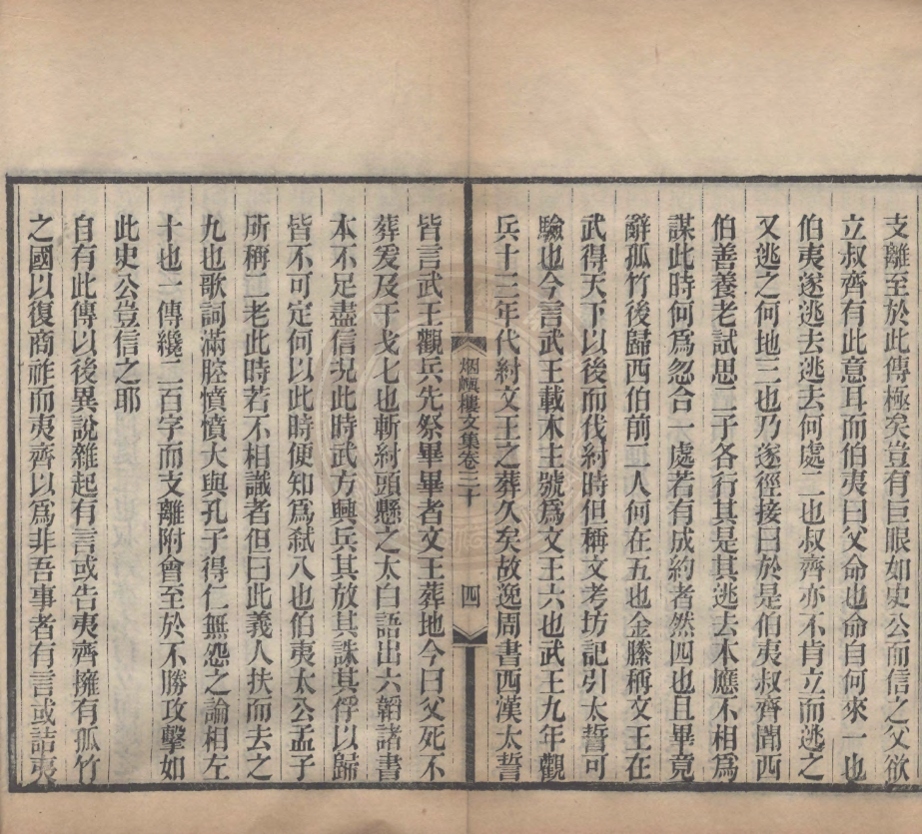 支離至於此傳極矣豈有巨眼如史公而信之父欲
立叔齊有此意耳而伯夷曰父命也命自何來一也
伯夷遂逃去逃去何處二也叔齊亦不肯立而逃之
又逃之何地三也乃遂徑接曰於是伯夷叔齊聞西
伯善養老試思二子各行其是其逃去本應不相爲
謀此時何爲忽合一處若有成約者然四也且畢竟
辭孤竹後歸西伯前二人何在五也金縢稱文王在
武得天下以後而伐紂時但稱文考坊記引太誓可
驗也今言武王載木主號爲文王六也武王九年觀
兵十三年代紂文王之葬久矣故逸周書西漢太誓
烟嶼樓文集卷三十
四
皆言武王觀兵先祭畢畢者文王葬地今曰父死不
葬爰及干戈七也斬紂頭懸之太白語出六韜諸書
本不足盡信况此時武方興兵其放其誅其俘以歸
皆不可定何以此時便知爲弑八也伯夷太公孟子
所稱二老此時若不相識者但曰此義人扶而去之
九也歌詞滿腔憤憤大與孔子得仁無怨之論相左
十也一傳纔二百字而支離附會至於不勝攻擊如
此史公豈信之耶
自有此傳以後異說雜起有言或告夷齊擁有孤竹
之國以復商祚而夷齊以爲非吾事者有言或詰夷